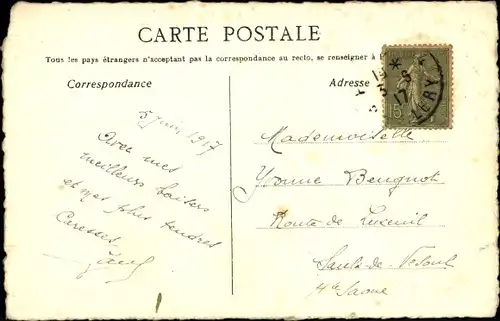 CARTE POSTALE
Tous les pays étrangers n'acceptant pas la correspondance au recto, se renseigner à
Correspondance
Adresse
15
13 *
5 - 6
17
LERY
5 Juin 1917
Avec mes
meilleurs baisers
et mes plus tendres
Caresses
Mademoiselle
Yvonne Beugnot
Route de Luxeuil
Saulx-de-Vesoul
Hte Saone